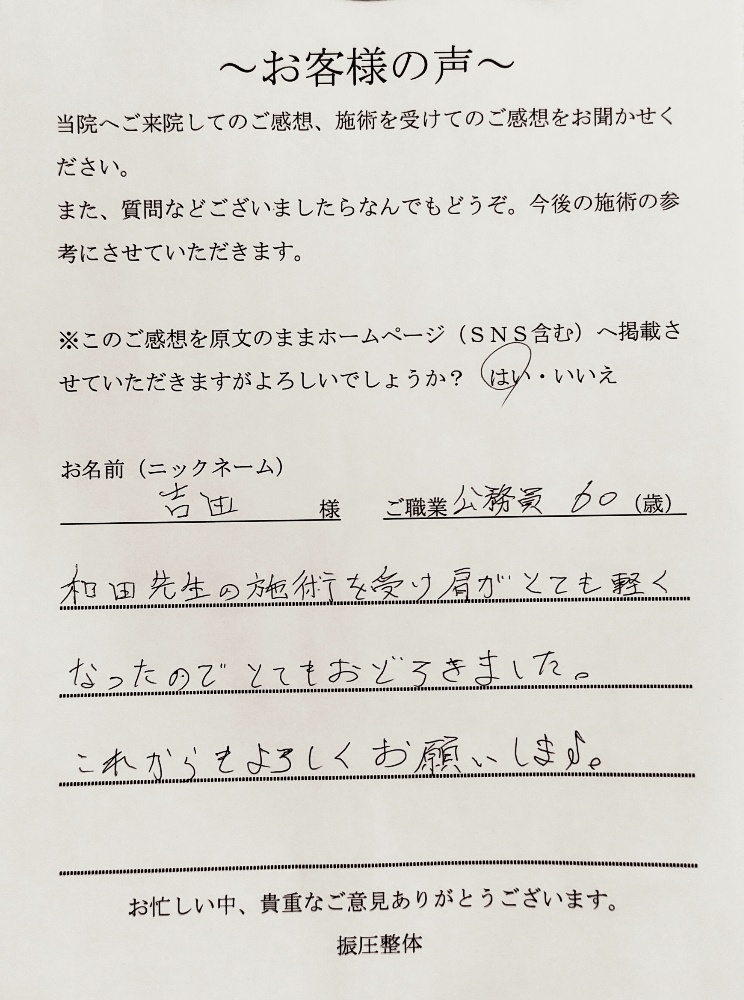 ～お客様の声～
当院へご来院してのご感想、施術を受けてのご感想をお聞かせく
ださい。
また、質問などございましたらなんでもどうぞ。今後の施術の参
考にさせていただきます。
※このご感想を原文のままホームページ（ＳＮＳ含む）へ掲載さ
せていただきますがよろしいでしょうか？ はい・いいえ
お名前（ニックネーム）
吉田 様 ご職業 公務員 60（歳）
和田先生の施術を受け肩がとても軽く
なったのでとてもおどろきました。
これからもよろしくお願いします。
お忙しい中、貴重なご意見ありがとうございます。
振圧整体